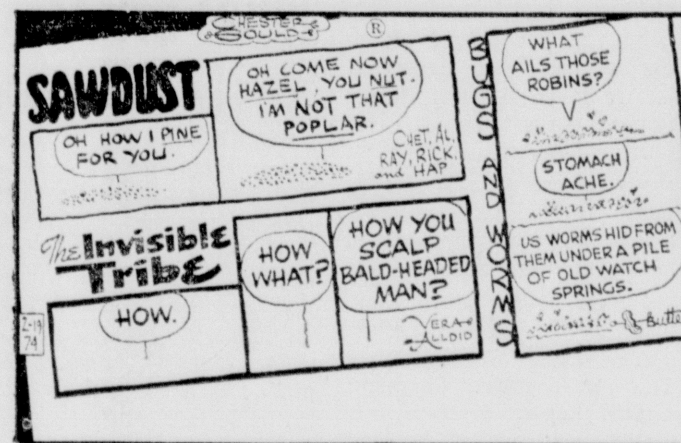 CHESTER
GOULD
®
SAWDUST
OH HOW I PINE
FOR YOU.
OH COME NOW
HAZEL, YOU NUT.
I'M NOT THAT
POPLAR.
CHET, AL,
RAY, RICK,
and HAP
The Invisible
Tribe
HOW.
HOW
WHAT?
HOW YOU
SCALP
BALD-HEADED
MAN?
VERA
ALLDID
2-19
74
BUGS AND WORMS
WHAT
AILS THOSE
ROBINS?
STOMACH
ACHE.
US WORMS HID FROM
THEM UNDER A PILE
OF OLD WATCH
SPRINGS.